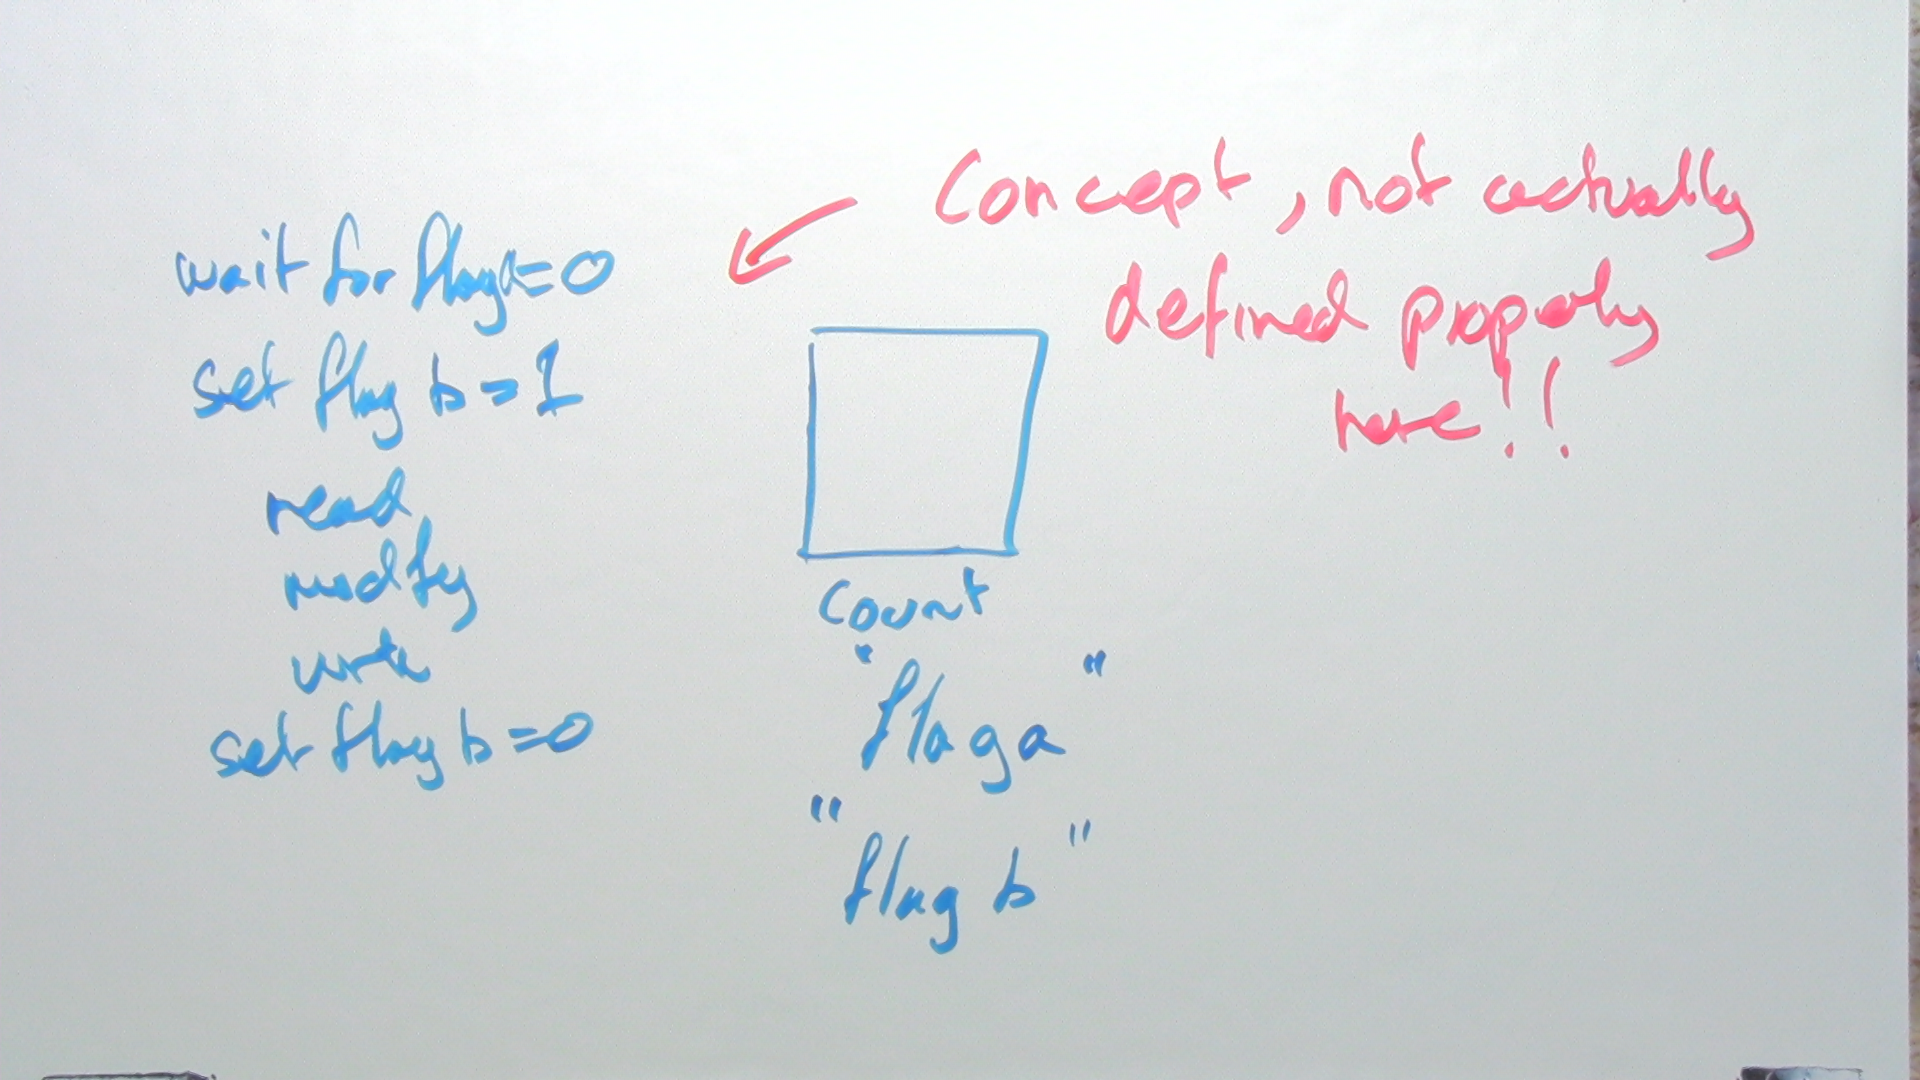 wait for flag a=0
set flag b=1
read
modify
write
set flag b=0
Concept, not actually
defined properly
here!!
count
"flag a"
"flag b"